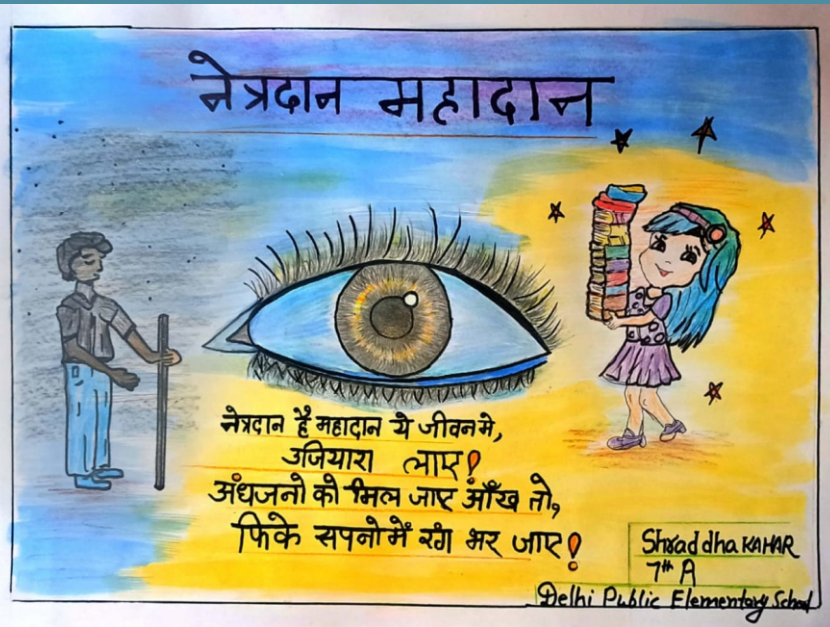 नेत्रदान महादान
नेत्रदान है महादान ये जीवनमे,
उजियारा लाए!
अंधजनो को मिल जाए आँख तो,
फिके सपनोमें रंग भर जाए!
Shraddha KAHAR
7th A
Delhi Public Elementary School